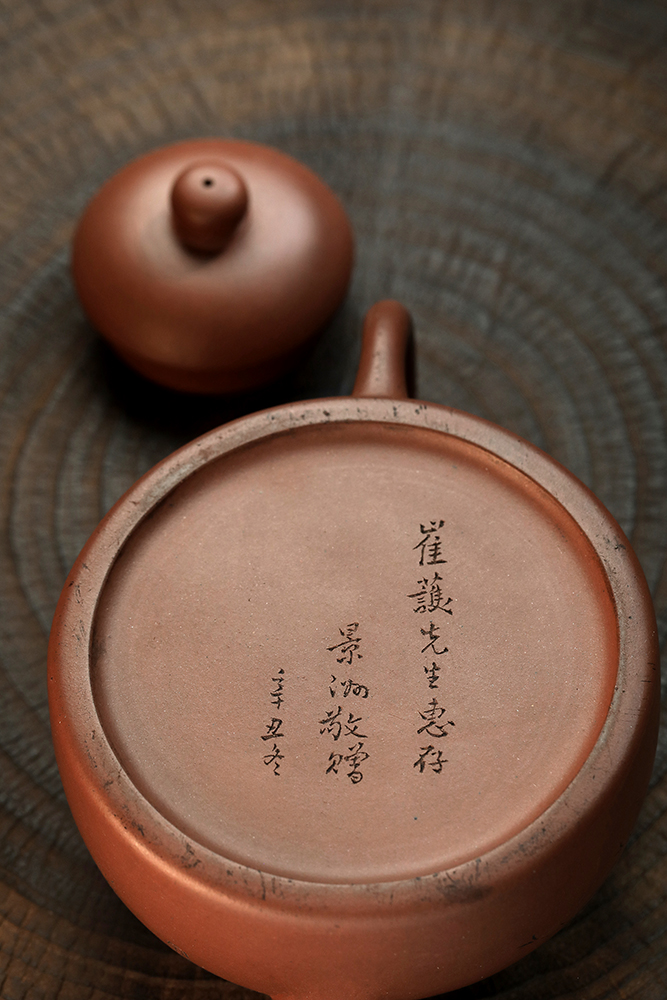 崔護先生惠存
景洲敬贈
辛丑冬